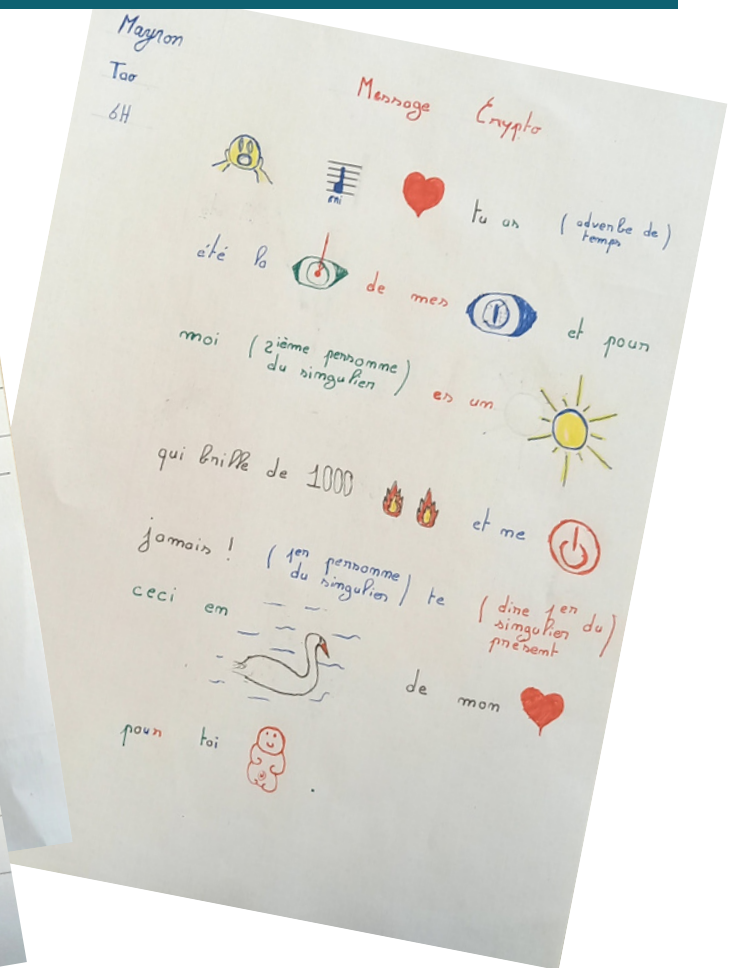 Mayron
Tao
6H
Message Crypto
mi
tu as (adverbe de temps)
été la de mes et pour
moi (2ième personne du singulier) es un
qui brille de 1000 et me
jamais ! (1er personne du singulier) te (dire 1er du singulier présent)
ceci en
de mon
pour toi .